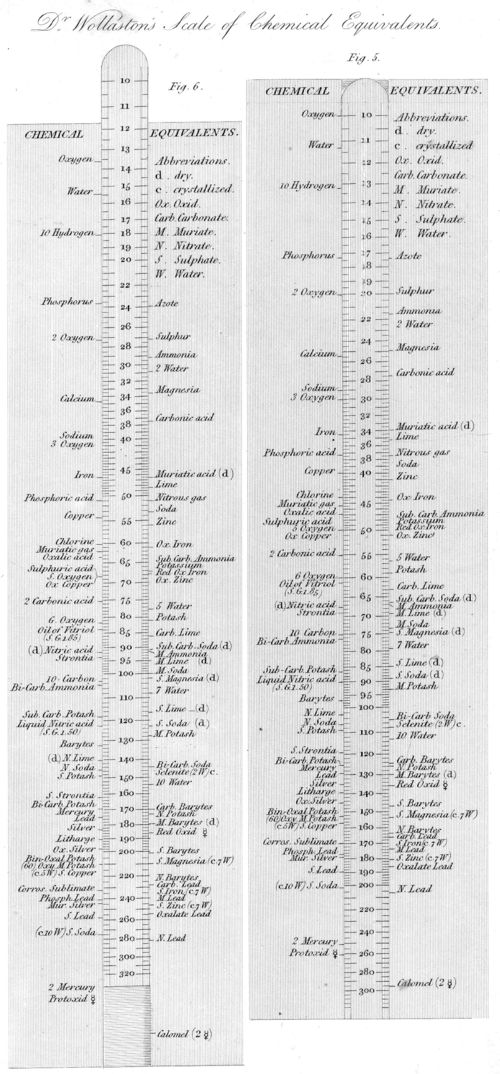 Dr Wollaston's Scale of Chemical Equivalents.
Fig. 6.
CHEMICAL
EQUIVALENTS.
Oxygen
Water
10 Hydrogen
Phosphorus
2 Oxygen
Calcium
Sodium
3 Oxygen
Iron
Phosphoric acid
Copper
Chlorine
Muriatic gas
Oxalic acid
Sulphuric acid
5. Oxygen
Ox Copper
2 Carbonic acid
6. Oxygen
Oil of Vitriol
(S.G.1.85)
(d) Nitric acid
Strontia
10 Carbon
Bi-Carb. Ammonia
Sub. Carb. Potash
Liquid Nitric acid
(S.G.1.50)
Barytes
(d) N. Lime
N. Soda
S. Potash
S. Strontia
Bi-Carb Potash
Mercury
Lead
Silver
Litharge
Ox. Silver
Bin-Oxal Potash
(60) Oxy M. Potash
(c.5W) S. Copper
Corros. Sublimate
Phosph. Lead
Mur. Silver
S. Lead
(c.10 W) S. Soda
2 Mercury
Protoxid ☿
10
11
12
13
14
15
16
17
18
19
20
22
24
26
28
30
32
34
36
38
40
45
50
55
60
65
70
75
80
85
90
95
100
110
120
130
140
150
160
170
180
190
200
220
240
260
280
300
320
Abbreviations.
d. dry.
c. crystallized.
Ox. Oxid.
Carb. Carbonate.
M. Muriate.
N. Nitrate.
S. Sulphate.
W. Water.
Azote
Sulphur
Ammonia
2 Water
Magnesia
Carbonic acid
Muriatic acid (d)
Lime
Nitrous gas
Soda
Zinc
Ox. Iron
Sub. Carb. Ammonia
Potassium
Red Ox Iron
Ox. Zinc
5 Water
Potash
Carb. Lime
Sub. Carb. Soda (d)
M. Ammonia
M. Lime (d)
M. Soda
S. Magnesia (d)
7 Water
S. Lime (d)
S. Soda (d)
M. Potash
Bi-Carb. Soda
Selenite (2W) c.
10 Water
Carb. Barytes
N. Potash
M. Barytes (d)
Red Oxid ☿
S. Barytes
S. Magnesia (c.7W)
N. Barytes
Carb. Lead
S. Iron (c.7W)
M. Lead
S. Zinc (c.7W)
Oxalate Lead
N. Lead
Calomel (2 ☿)
Fig. 5.
CHEMICAL
EQUIVALENTS.
Oxygen
Water
10 Hydrogen
Phosphorus
2 Oxygen
Calcium
Sodium
3 Oxygen
Iron
Phosphoric acid
Copper
Chlorine
Muriatic gas
Oxalic acid
Sulphuric acid
5 Oxygen
Ox Copper
2 Carbonic acid
6 Oxygen
Oil of Vitriol
(S.G.1.85)
(d) Nitric acid
Strontia
10 Carbon
Bi-Carb. Ammonia
Sub-Carb. Potash
Liquid Nitric acid
(S.G.1.50)
Barytes
N. Lime
N. Soda
S. Potash
S. Strontia
Bi-Carb. Potash
Mercury
Lead
Silver
Litharge
Ox. Silver
Bin-Oxal Potash
(60) Oxy M. Potash
(c.5W) S. Copper
Corros. Sublimate
Phosph. Lead
Mur. Silver
S. Lead
(c.10 W) S. Soda
2 Mercury
Protoxid ☿
10
11
12
13
14
15
16
17
18
19
20
22
24
26
28
30
32
34
36
38
40
45
50
55
60
65
70
75
80
85
90
95
100
110
120
130
140
150
160
170
180
190
200
220
240
260
280
300
Abbreviations.
d. dry.
c. crystallized
Ox. Oxid.
Carb. Carbonate.
M. Muriate.
N. Nitrate.
S. Sulphate.
W. Water.
Azote
Sulphur
Ammonia
2 Water
Magnesia
Carbonic acid
Muriatic acid (d)
Lime
Nitrous gas
Soda
Zinc
Ox. Iron
Sub. Carb. Ammonia
Potassium
Red Ox Iron
Ox. Zinc
5 Water
Potash
Carb. Lime
Sub. Carb. Soda (d)
M. Ammonia
M. Lime (d)
M. Soda
S. Magnesia (d)
7 Water
S. Lime (d)
S. Soda (d)
M. Potash
Bi-Carb Soda
Selenite (2W) c.
10 Water
Carb. Barytes
N. Potash
M. Barytes (d)
Red Oxid ☿
S. Barytes
S. Magnesia (c.7W)
N. Barytes
Carb. Lead
S. Iron (c.7W)
M. Lead
S. Zinc (c.7W)
Oxalate Lead
N. Lead
Calomel (2 ☿)